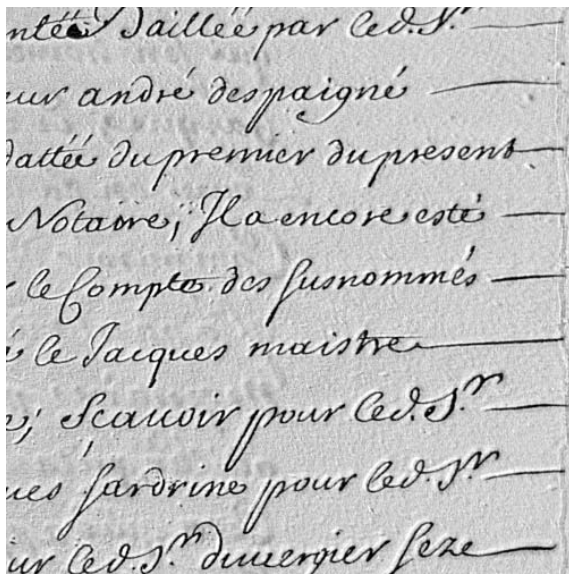 ntée d'aillée par led. S.r
eur andré despaigné
dattée du premier du present
Notaire; Il a encore esté
le Compte des susnommés
le Jacques maistre
; Scauoir pour led. S.r
ues sardrine pour led. S.r
ur led. S.r duuergier seze